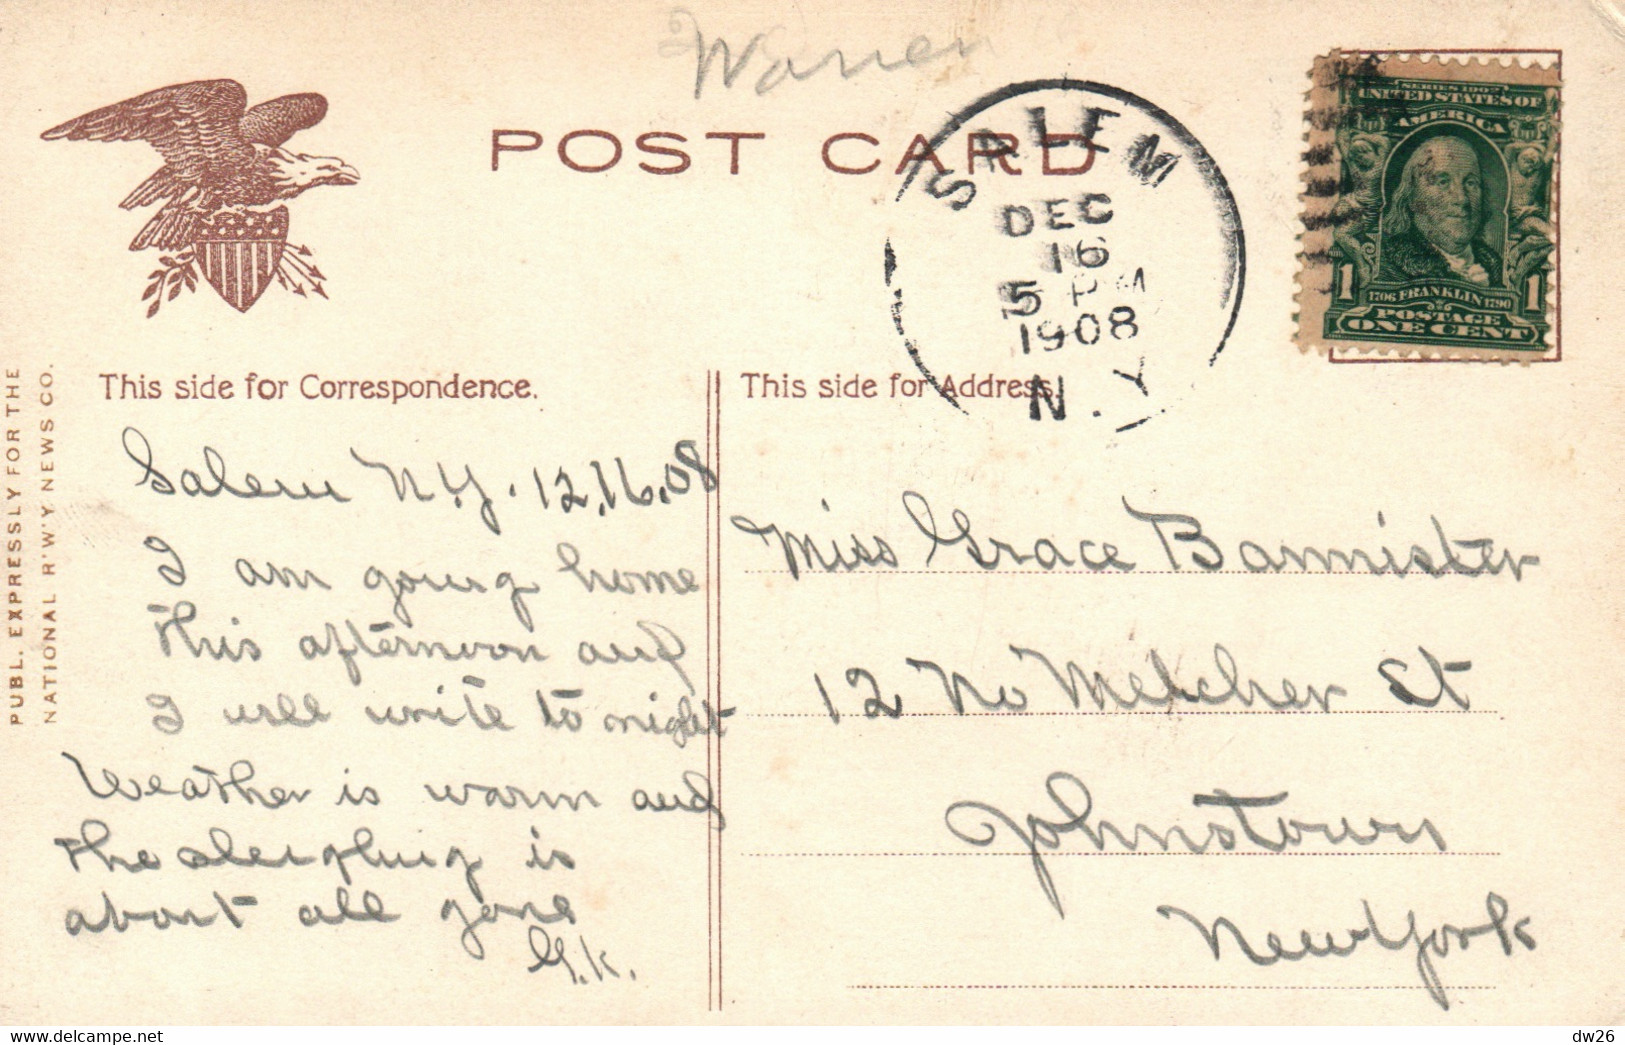 Warren
POST CARD
SALEM
DEC
16
5 PM
1908
N.Y.
SERIES 1902
UNITED STATES OF
AMERICA
1 1706 FRANKLIN 1790 1
POSTAGE
ONE CENT
PUBL. EXPRESSLY FOR THE
NATIONAL R'W'Y NEWS CO.
This side for Correspondence.
Salem N.Y. 12.16.08
I am going home
this afternoon and
I will write to night
Weather is warm and
the sleighing is
about all gone
G.K.
This side for Address.
Miss Grace Bannister
12 No Melcher St
Johnstown
New York
www.delcampe.net
dw26